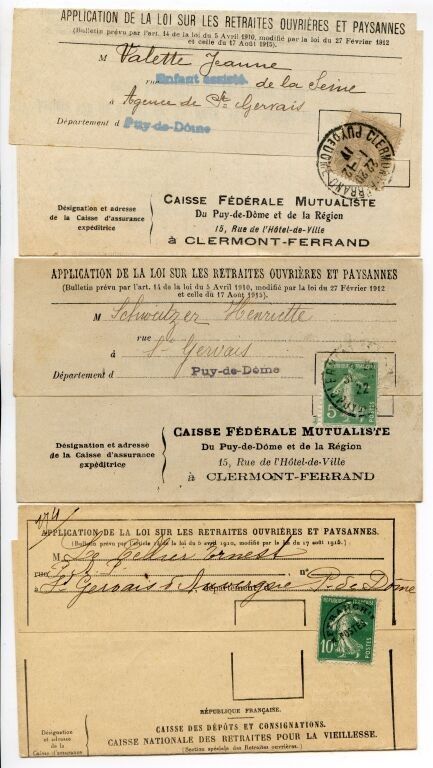 APPLICATION DE LA LOI SUR LES RETRAITES OUVRIÈRES ET PAYSANNES
(Bulletin prévu par l'art. 14 de la loi du 5 Avril 1910, modifié par la loi du 27 Février 1912
et celle du 17 Août 1915).
M Valette Jeanne
rue Enfant assisté de la Seine
à Agence de St Gervais
Département d Puy-de-Dôme
CLERMONT-FERRAND PUY DE DOME
Désignation et adresse
de la Caisse d'assurance
expéditrice
CAISSE FÉDÉRALE MUTUALISTE
Du Puy-de-Dôme et de la Région
15, Rue de l'Hôtel-de-Ville
à CLERMONT-FERRAND
APPLICATION DE LA LOI SUR LES RETRAITES OUVRIÈRES ET PAYSANNES
(Bulletin prévu par l'art. 14 de la loi du 5 Avril 1910, modifié par la loi du 27 Février 1912
et celle du 17 Août 1915).
M Schweitzer Henriette
rue
à St Gervais
Département d Puy-de-Dôme
5
22
POSTES
Désignation et adresse
de la Caisse d'assurance
expéditrice
CAISSE FÉDÉRALE MUTUALISTE
Du Puy-de-Dôme et de la Région
15, Rue de l'Hôtel-de-Ville
à CLERMONT-FERRAND
APPLICATION DE LA LOI SUR LES RETRAITES OUVRIÈRES ET PAYSANNES.
(Bulletin prévu par l'article 14 de la loi du 5 avril 1910, modifié par la loi du 17 août 1915.)
M. Le Tellier Ernest
rue n°
à St Gervais d'Auvergne département P. de Dôme
10c
POSTES
RÉPUBLIQUE FRANÇAISE.
Désignation
et adresse
de la
Caisse d'assurance
CAISSE DES DÉPÔTS ET CONSIGNATIONS.
CAISSE NATIONALE DES RETRAITES POUR LA VIEILLESSE.
(Section spéciale des Retraites ouvrières.)